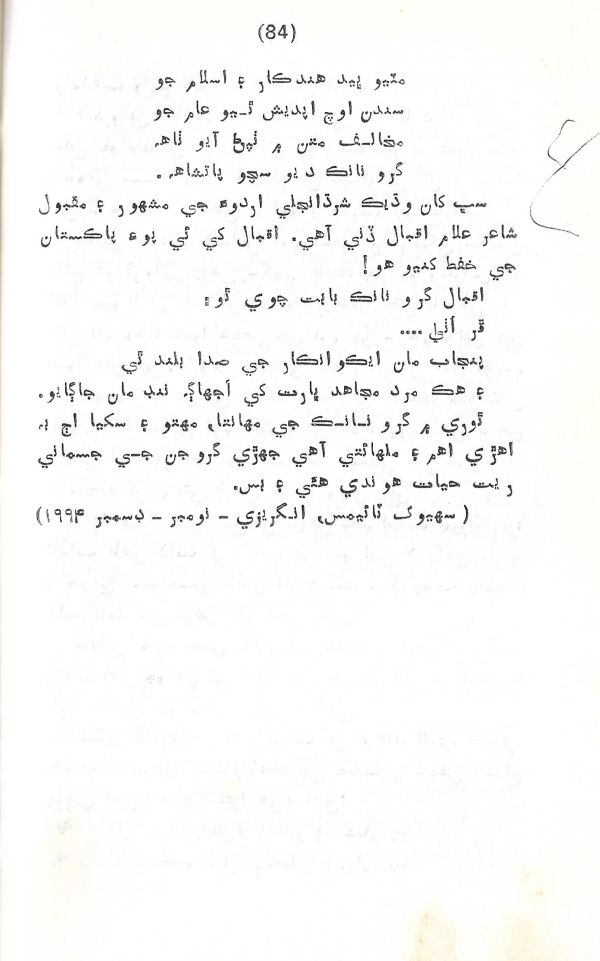 (84)
مٽيو ڀيد هندڪار ۽ اسلام جو
سندن اوچ اپديش ٿيو عام جو
مخالف متن ۾ ٺپڻ آيو ٺاهه
گرو نانڪ ديو سچو پاتشاهه.
سڀ کان وڌيڪ شرڌانجلي اردوءَ جي مشهور ۽ مقبول
شاعر علام اقبال ڏني آهي. اقبال کي ئي پوءِ پاڪستان
جي خفط کنيو هو!
اقبال گرو نانڪ بابت چوي ٿو:
ڦر اُٺي ....
پنجاب مان ايڪوانڪار جي صدا بلند ٿي
۽ هڪ مرد مجاهد ڀارت کي اُجهاڳ ننڊ مان جاڳايو.
ٿوري ۾ گرو نانڪ جي مهانتا، مهتو ۽ سکيا اڄ به
اهڙي اهم ۽ ملهائتي آهي جهڙي گروجن جي جسماني
ريت حيات هوندي هئي ۽ بس.
(سهيوگ ٽائيمس، انگريزي - نومبر - ڊسمبر ۱۹۹۴)